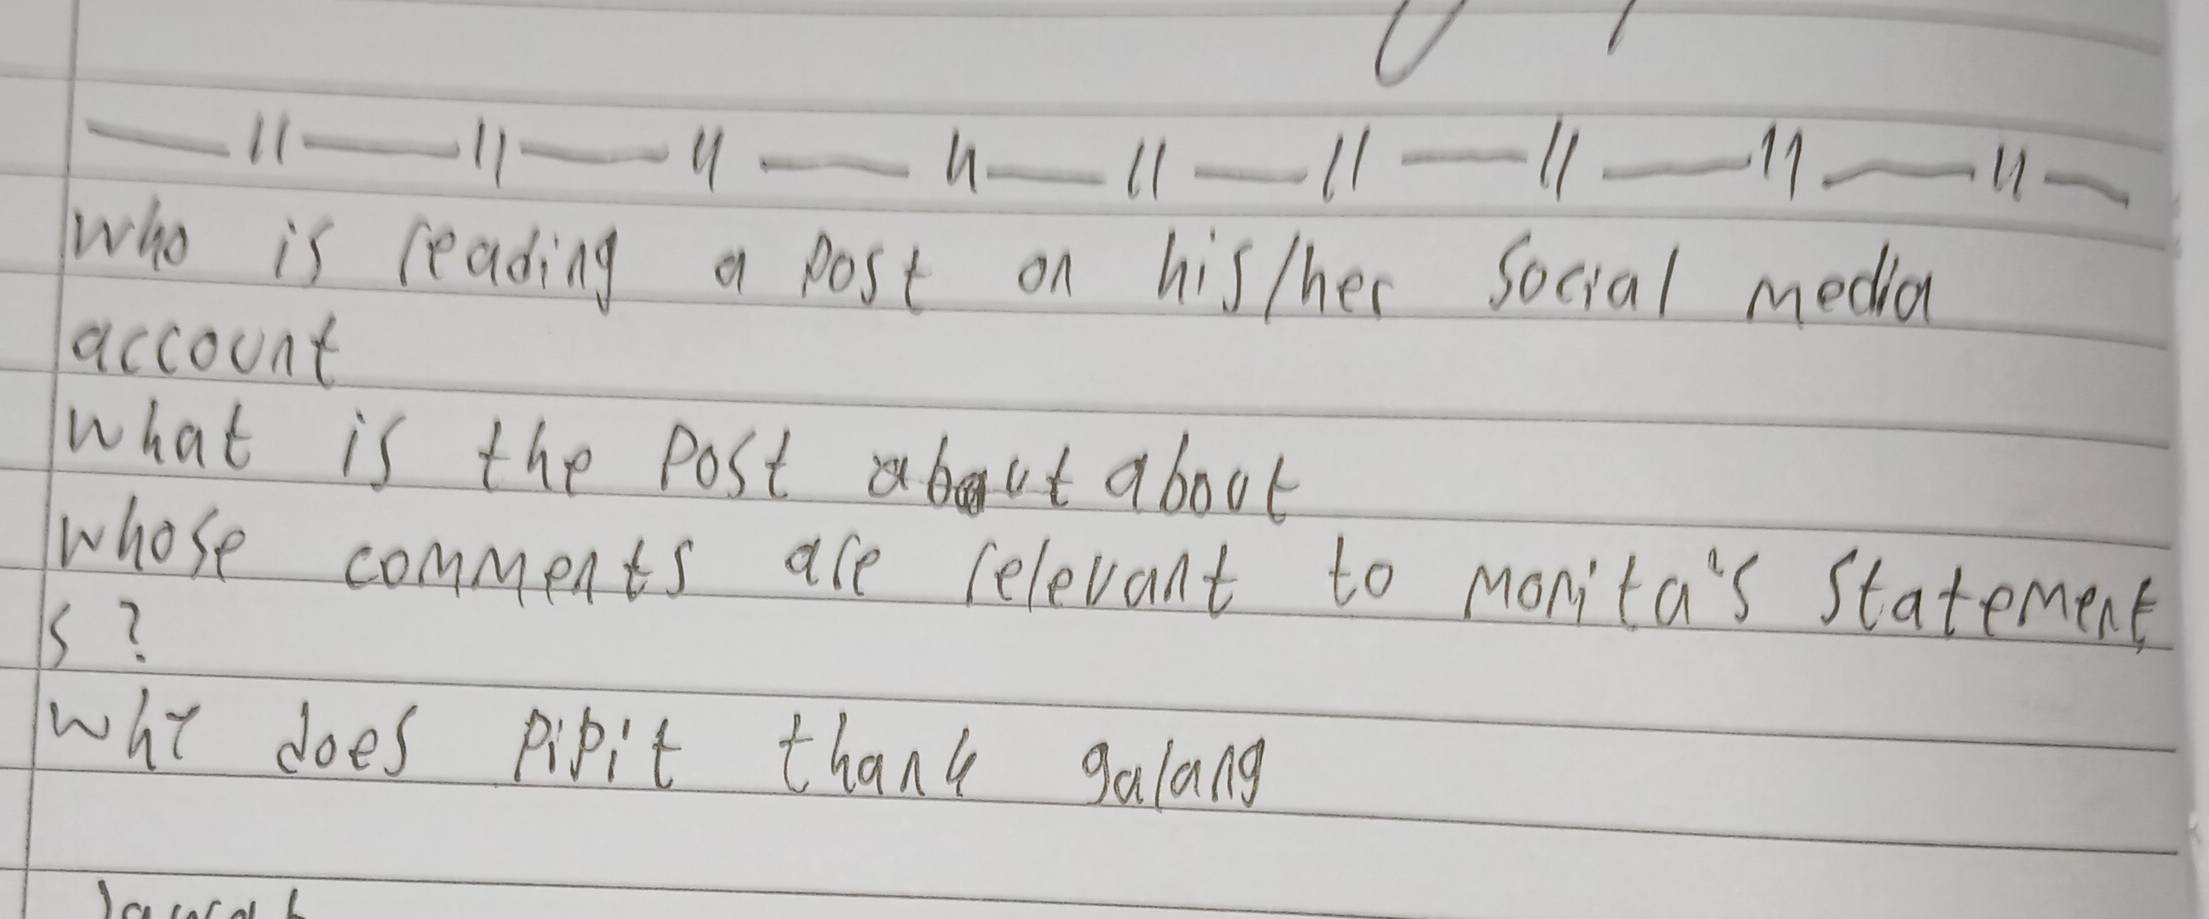 Who is reading a post on his/her social media
account
what is the post about about
whose comments are relevant to Monita's statement
s?
why does pipit thank galang